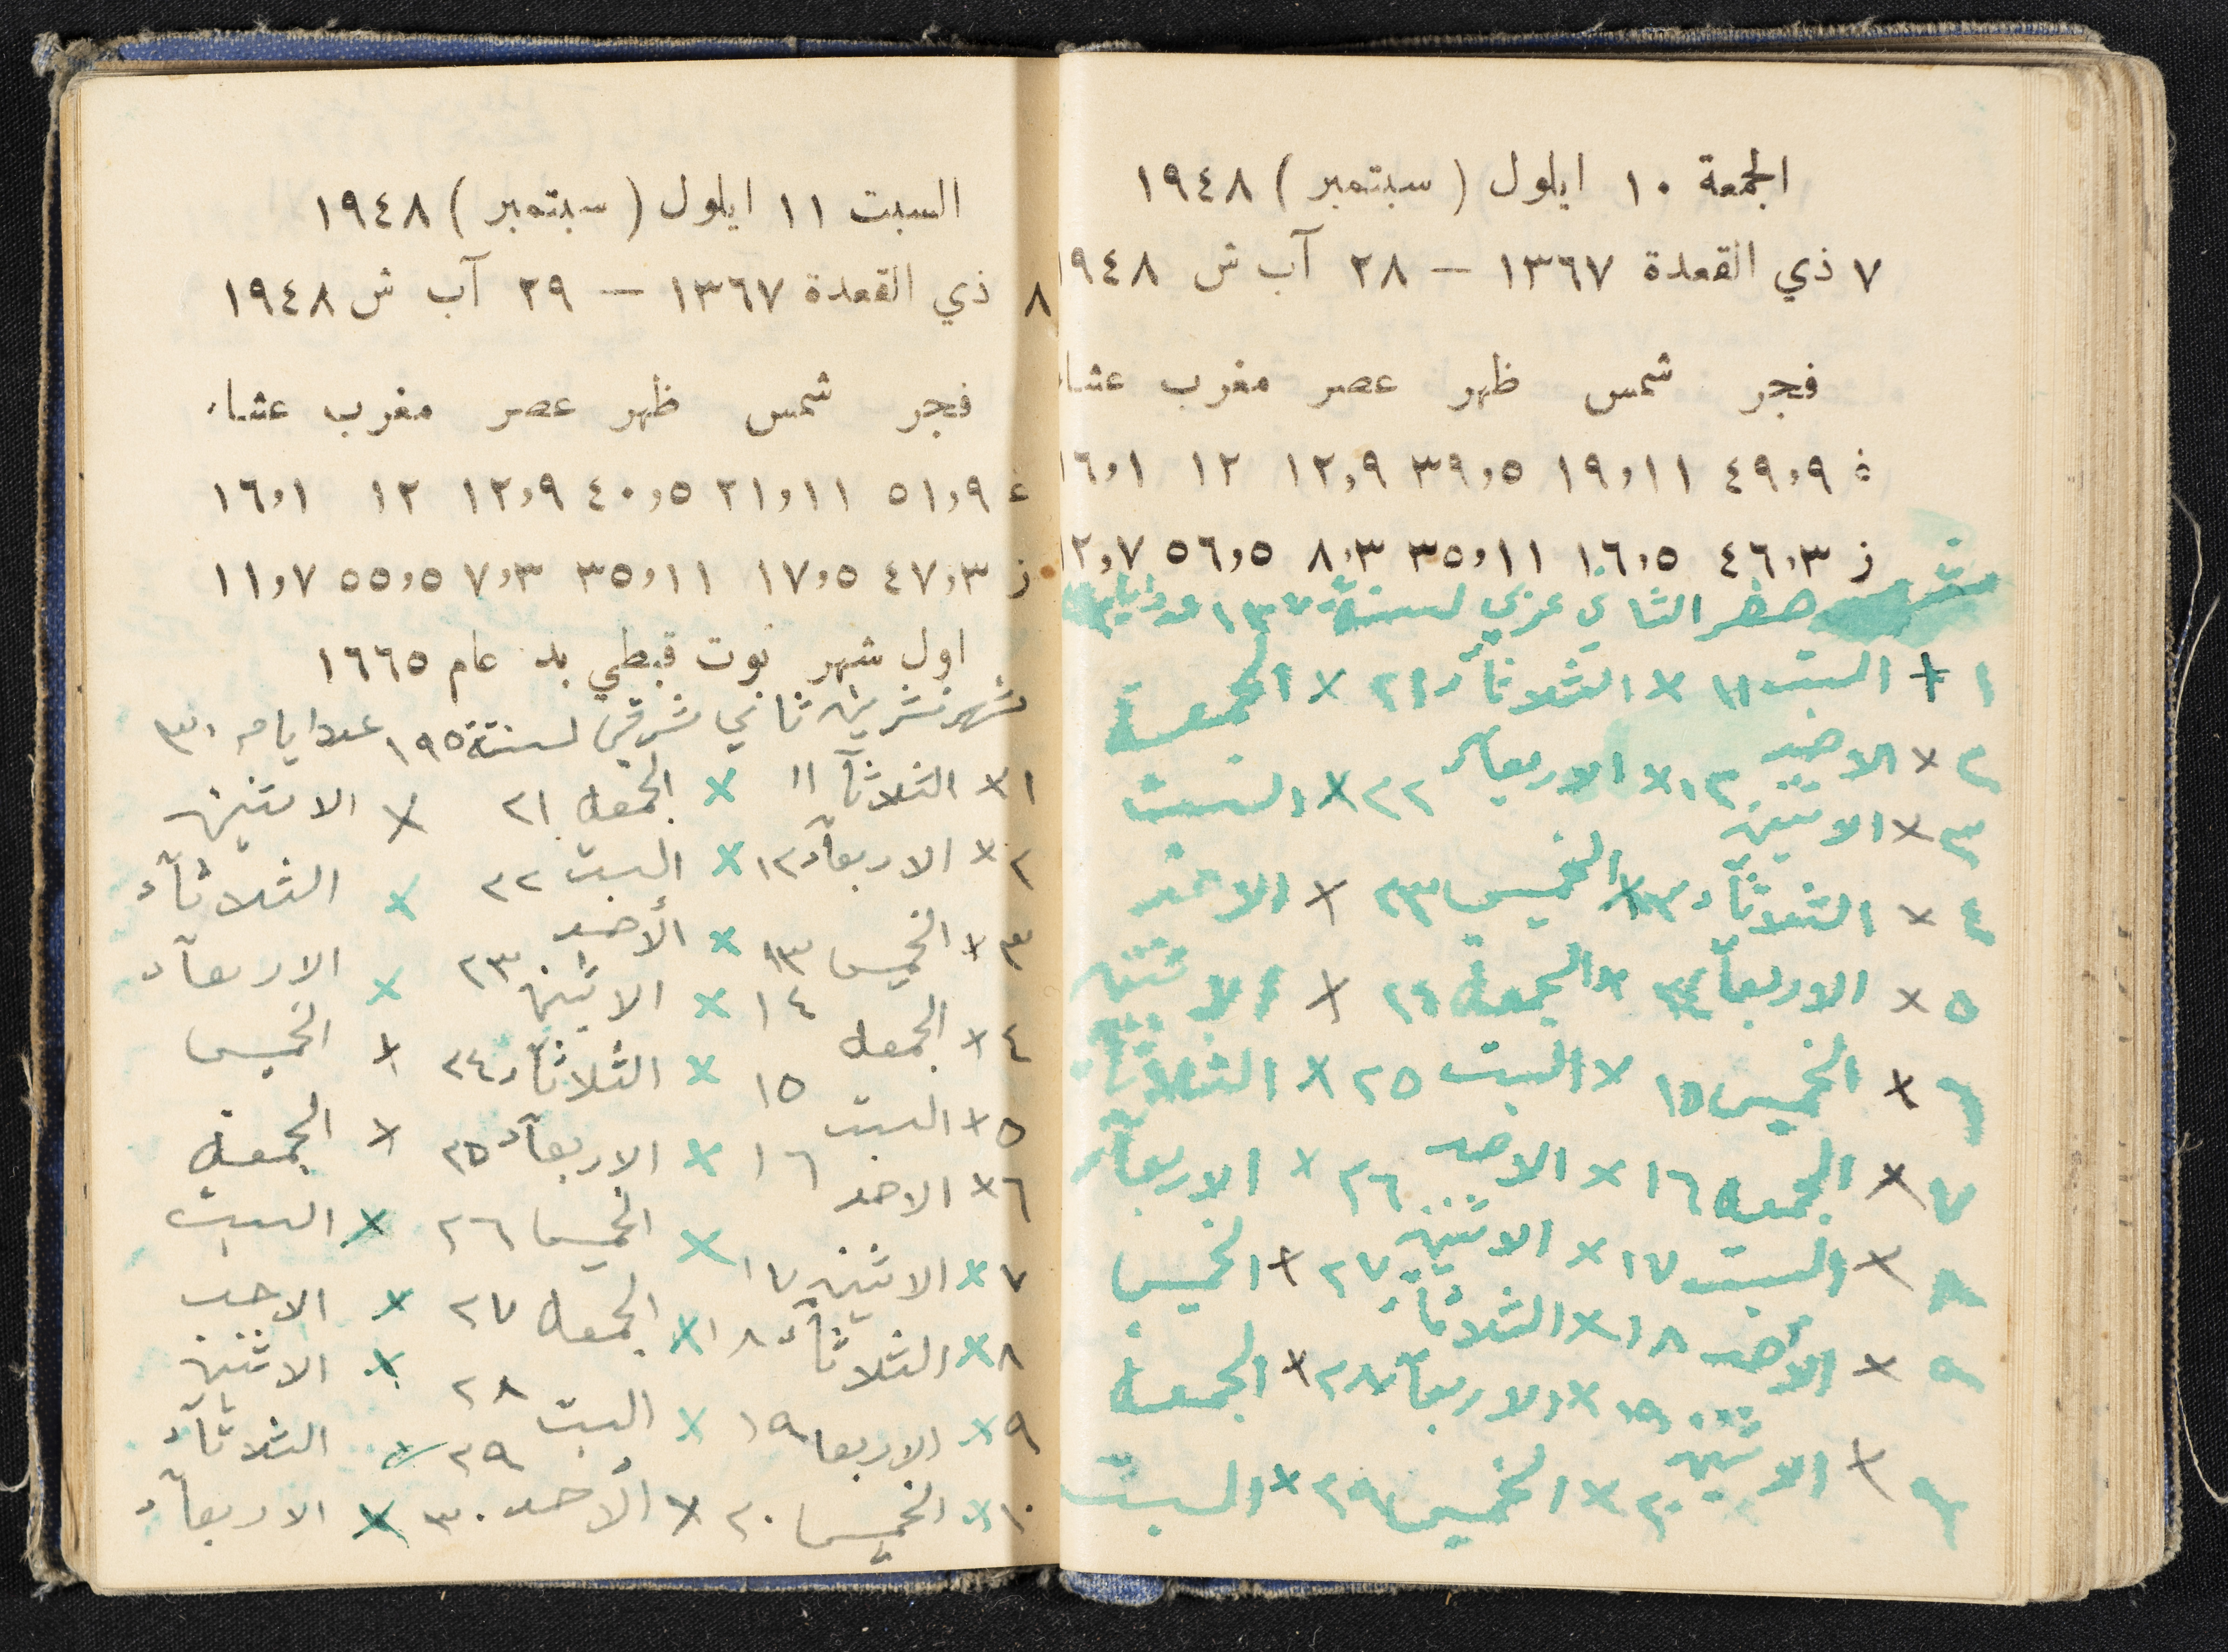 الجمعة ١٠ ايلول ( سبتمبر ) ١٩٤٨
٧ ذي القعدة ١٣٦٧ — ٢٨ آب ش ٩٤٨
فجر شمس ظهر عصر مغرب عشا
٤٩,٩ ١٩,١١ ٣٩,٥ ١٢,٩ ١٢ ١٦,١
ز ٤٦,٣ ١٦,٥ ٣٥,١١ ٨,٣ ٥٦,٥ ١٢,٧
صفر الثاني عربي لسنة
١ + السبت ١١ × الثلاثآء ٢١ × الجمعة
٢ × الاحد ١٢ × الاربعآء ٢٢ × السبت
٣ × الاثنين
٤ × الثلاثآء ١٣ × الخميس ٢٣ × الاحد
٥ × الاربعآ × الجمعه ٢٤ × الاثنين
٦ × الخميس ١٥ × السبت ٢٥ × الثلاثآء
٧ × الجمعه ١٦ × الاحد ٢٦ × الاربعآء
٨ × السبت ١٧ × الاثنين ٢٧ × الخميس
٩ × الأحد ١٨ × الثلاثآء
× الاثنين ١٩ × الاربعآء ٢٨ × الجمعة
٢٠ × الخميس ٢٩ × السبت
السبت ١١ ايلول ( سبتمبر ) ١٩٤٨
٨ ذي القعدة ١٣٦٧ — ٢٩ آب ش ١٩٤٨
فجر شمس ظهر عصر مغرب عشاء
٥١,٩ ٢١,١١ ٤٠,٥ ١٢,٩ ١٢ ١٦,١
ز ٤٧,٣ ١٧,٥ ٣٥,١١ ٧,٣ ٥٥,٥ ١١,٧
اول شهر توت قبطي بدء عام ١٦٦٥
شهر تشرين ثاني شرقي لسنة ١٩٥ عدد ايامه ٣٠
١ × الثلاثآ ١١ × الجمعه ٢١ × الاثنين
٢ × الاربعآء ١٢ × السبت ٢٢ × الثلاثآء
٣ × الخميس ١٣ × الأحد ٢٣ × الاربعآء
٤ × الجمعه ١٤ × الاثنين
١٥ × الثلاثآء ٢٤ × الخميس
٥ × السبت ١٦ × الاربعآء ٢٥ × الجمعة
٦ × الاحد × الخميس ٢٦ × السبت
٧ × الاثنين ١٧ × الجمعه ٢٧ × الاحد
٨ × الثلاثآء ١٨ × السبت ٢٨ × الاثنين
٩ × الاربعا ١٩ ٢٩ × الثلاثآء
١٠ × الخميس ٢٠ × الأحد ٣٠ × الاربعآء